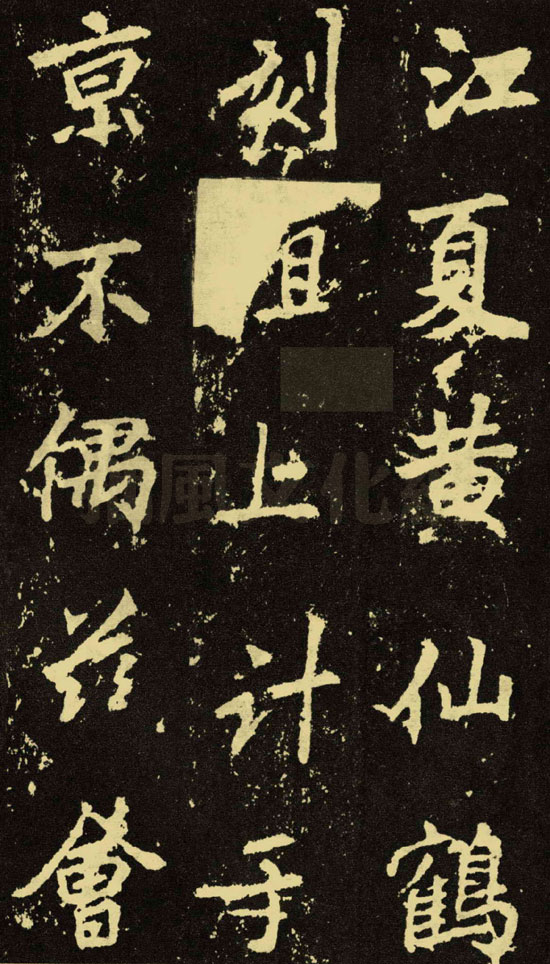 江夏黄仙鶴
刻且上计于
京不偶兹會
風文化